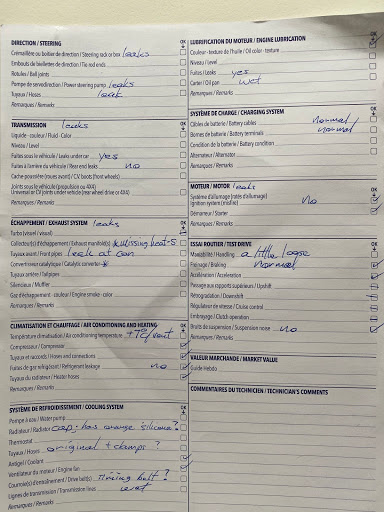 DIRECTION / STEERING OK
Crémaillère ou boîtier de direction / Steering rack or box leaks
Embouts de biellettes de direction / Tie rod ends
Rotules / Ball joints
Pompe de servodirection / Power steering pump leaks
Tuyaux / Hoses leak
Remarques / Remarks
TRANSMISSION leaks OK
Liquide - couleur / Fluid - Color
Niveau / Level
Fuites sous le véhicule / Leaks under car yes
Fuites à l'arrière du véhicule / Rear end leaks no
Cache-poussière (roues avant) / CV boots (front wheels)
Joints sous le véhicule (propulsion ou 4X4)
Universal or CV joints under vehicle (rear wheel drive or 4X4)
Remarques / Remarks
ÉCHAPPEMENT / EXHAUST SYSTEM leaks OK
Turbo (visuel) / (visual)
Collecteur(s) d'échappement / Exhaust manifold(s) missing heat-s
Tuyaux avant / Front pipes leak at con
Convertisseur catalytique / Catalytic converter
Tuyaux arrière / Tailpipes
Silencieux / Muffler
Gaz d'échappement - couleur / Engine smoke - color
Remarques / Remarks
CLIMATISATION ET CHAUFFAGE / AIR CONDITIONING AND HEATING OK
Température climatisation / Air conditioning temperature +7C/vent
Compresseur / Compressor
Tuyaux et raccords / Hoses and connections
Fuites de gaz réfrigérant / Refrigerant leakage no
Tuyaux du radiateur / Heater hoses
Remarques / Remarks
SYSTÈME DE REFROIDISSEMENT / COOLING SYSTEM OK
Pompe à eau / Water pump
Radiateur / Radiator cap, has orange silicone?
Thermostat
Tuyaux / Hoses original + clamps ?
Antigel / Coolant
Ventilateur du moteur / Engine fan
Courroie(s) d'entraînement / Drive belt(s) Timing belt?
Lignes de transmission / Transmission lines
Remarques / Remarks
LUBRIFICATION DU MOTEUR / ENGINE LUBRICATION OK
Couleur - texture de l'huile / Oil color - texture
Niveau / Level
Fuites / Leaks yes
Carter / Oil pan wet
Remarques / Remarks
SYSTÈME DE CHARGE / CHARGING SYSTEM OK
Câbles de batterie / Battery cables normal
Bornes de batterie / Battery terminals normal
Condition de la batterie / Battery condition
Alternateur / Alternator
Remarques / Remarks
MOTEUR / MOTOR leaks OK
Système d'allumage (ratés d'allumage)
Ignition system (misfire) No
Démarreur / Starter
Remarques / Remarks
ESSAI ROUTIER / TEST DRIVE OK
Maniabilité / Handling a little loose
Freinage / Braking normal
Accélération / Acceleration
Passage aux rapports supérieurs / Upshift
Rétrogradation / Downshift
Régulateur de vitesse / Cruise control
Embrayage / Clutch operation
Bruits de suspension / Suspension noise no
Remarques / Remarks
VALEUR MARCHANDE / MARKET VALUE
Guide Hebdo
COMMENTAIRES DU TECHNICIEN / TECHNICIAN'S COMMENTS